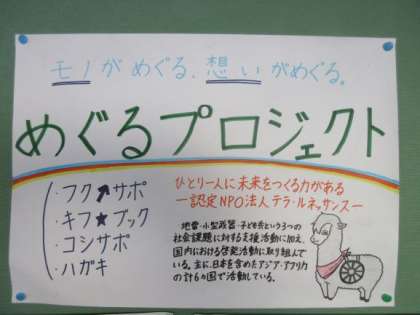 モノがめぐる、想いがめぐる。
めぐるプロジェクト
・フク↗サポ
・キフ★ブック
・コシサポ
・ハガキ
ひとり一人に未来をつくる力がある
ー認定NPO法人テラ・ルネッサンスー
地雷・小型武器・子ども兵という3つの
社会課題に対する支援活動に加え、
国内における啓発活動に取り組んで
いる。主に、日本を含めたアジア・アフリカ
の計6か国で活動している。